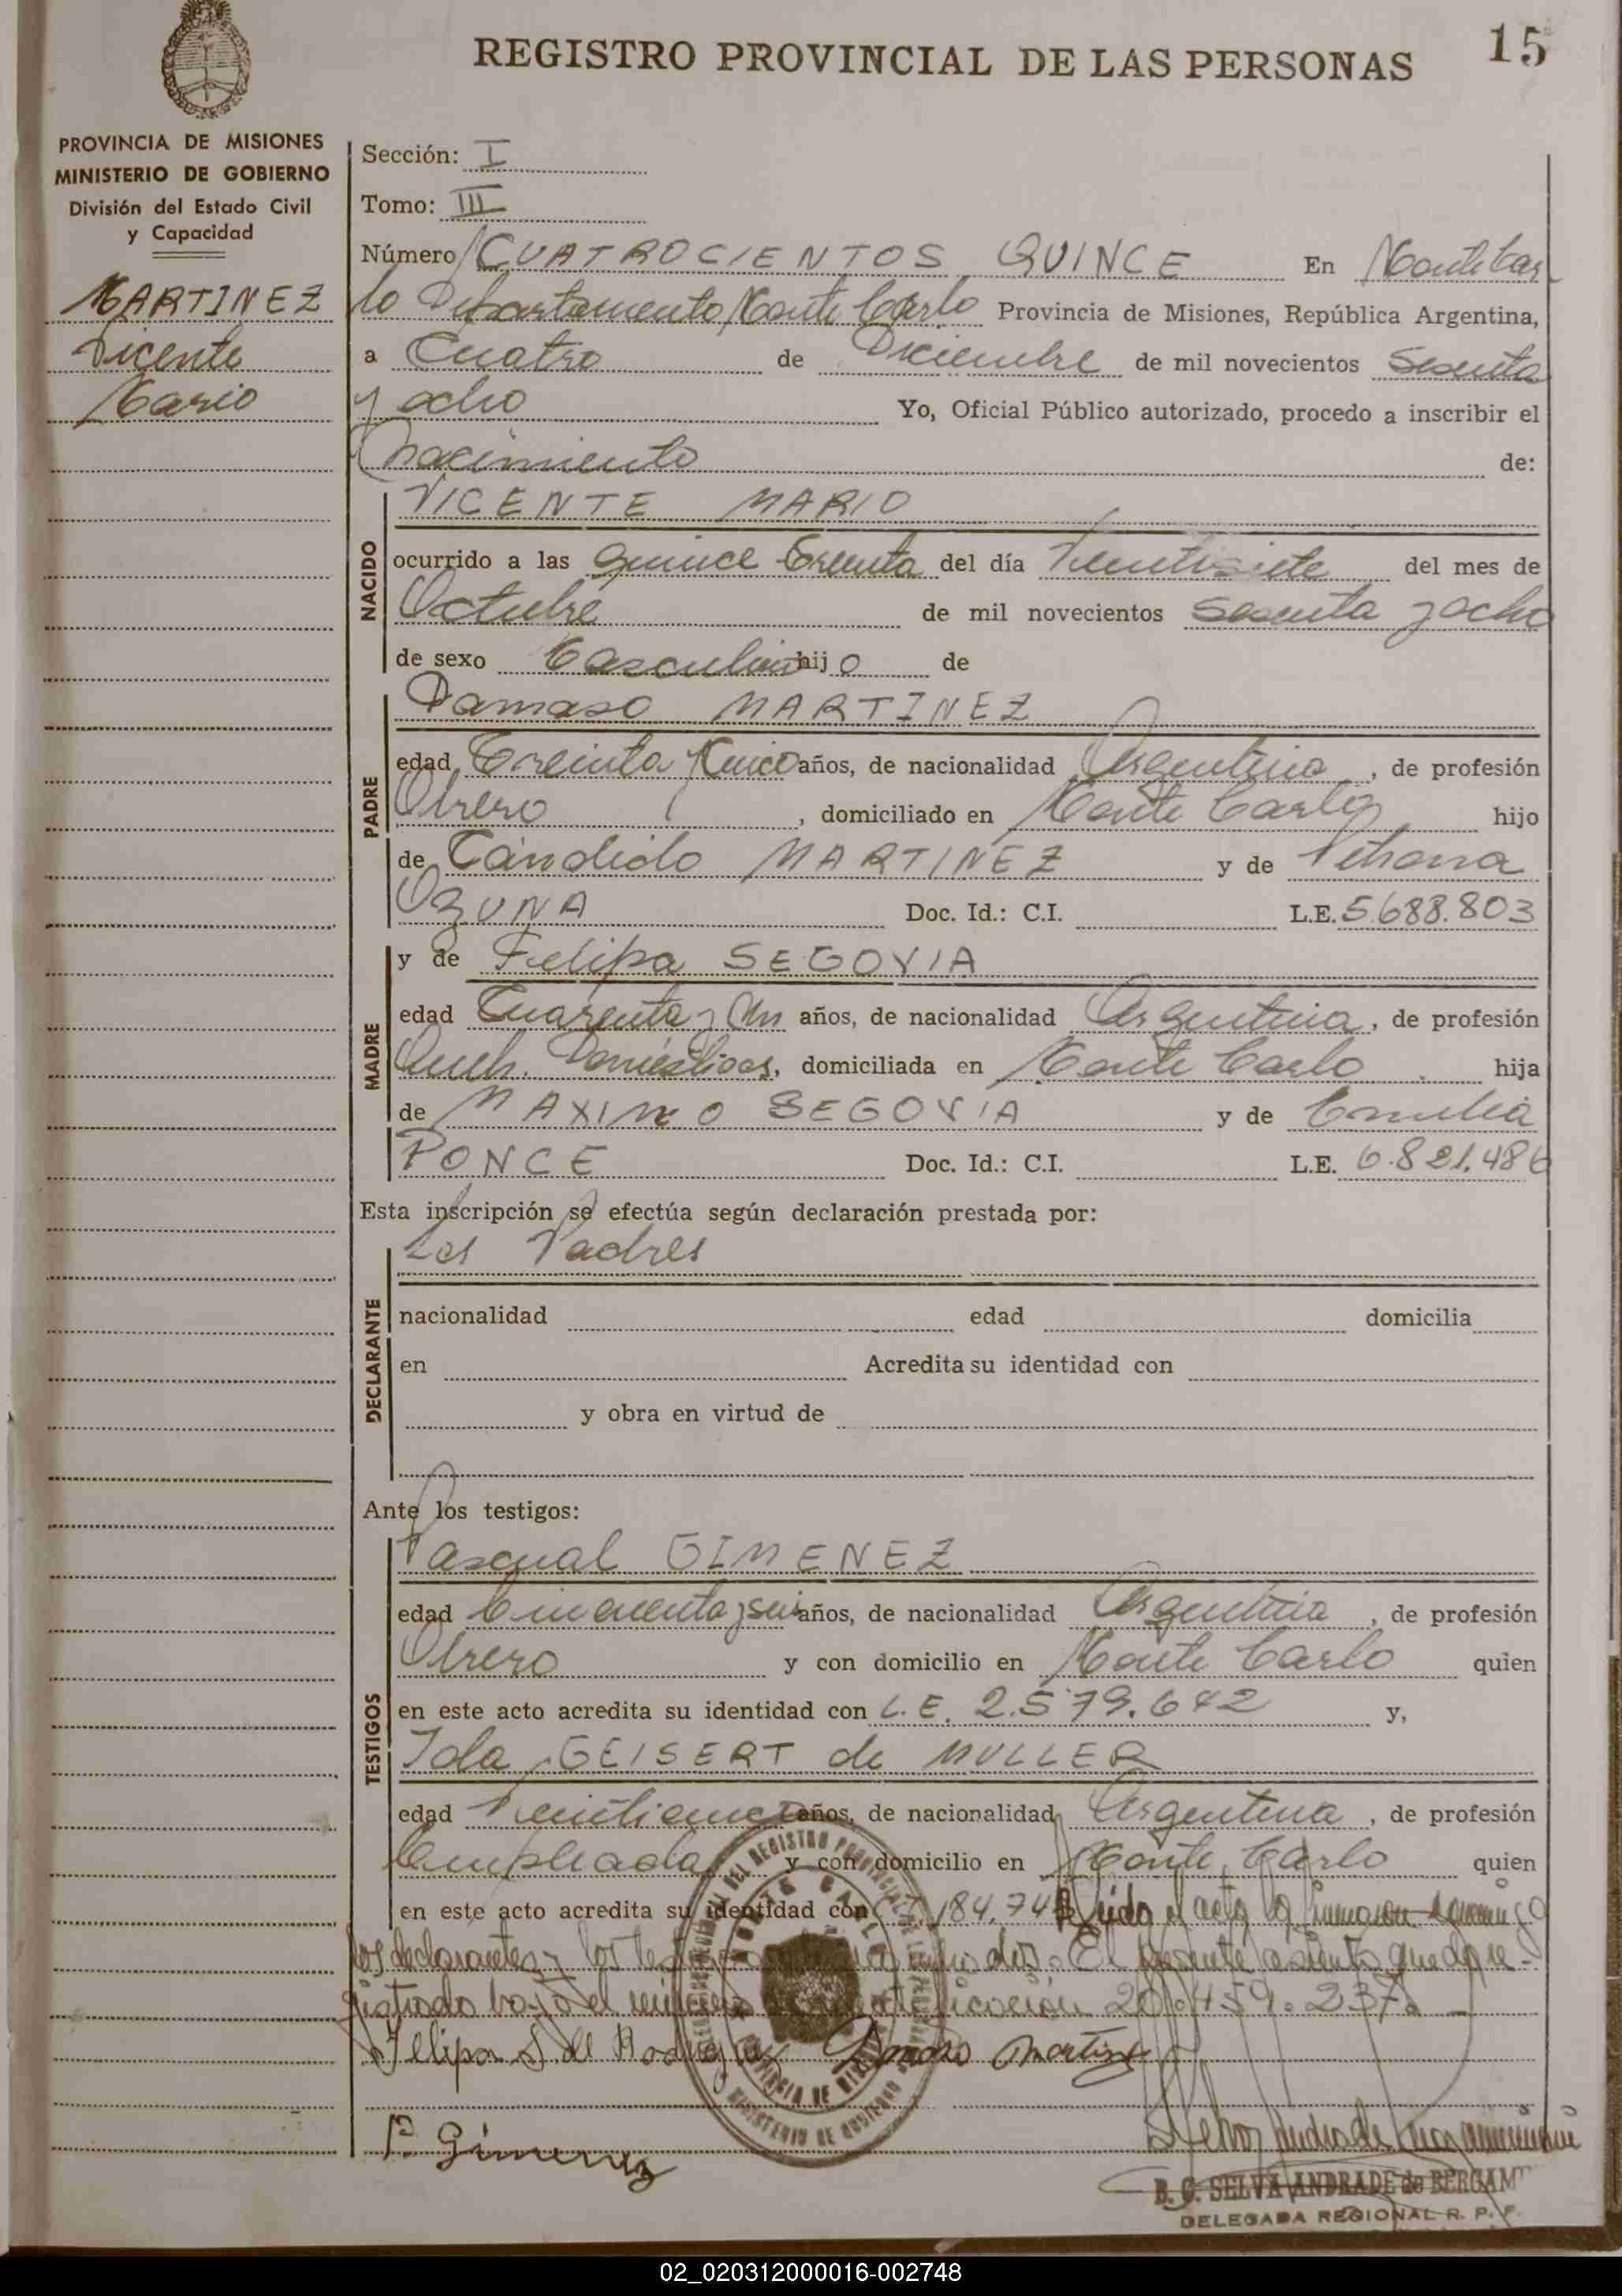 REGISTRO PROVINCIAL DE LAS PERSONAS 15
PROVINCIA DE MISIONES
MINISTERIO DE GOBIERNO
División del Estado Civil
y Capacidad
MARTINEZ
Vicente
Mario
Sección: I
Tomo: III
Número CUATROCIENTOS QUINCE En Montecar
lo Departamento Monte Carlo Provincia de Misiones, República Argentina,
a Cuatro de Diciembre de mil novecientos Sesenta
y ocho Yo, Oficial Público autorizado, procedo a inscribir el
nacimiento de:
NACIDO
VICENTE MARIO
ocurrido a las quince treinta del día Veintisiete del mes de
Octubre de mil novecientos Sesenta y ocho
de sexo Masculino hijo de
PADRE
Damaso MARTINEZ
edad Treinta y cinco años, de nacionalidad Argentina, de profesión
Obrero, domiciliado en Monte Carlo hijo
de Cándido MARTINEZ y de
OZUNA Doc. Id.: C.I. L.E. 5.688.803
MADRE
y de Felipa SEGOVIA
edad Cuarenta y Un años, de nacionalidad Argentina, de profesión
Queh. Domésticos, domiciliada en Monte Carlo hija
de MAXIMO SEGOVIA y de Emilia
PONCE Doc. Id.: C.I. L.E. 6.821.486
Esta inscripción se efectúa según declaración prestada por:
DECLARANTE
Los Padres
nacionalidad edad domicilia
en Acredita su identidad con
y obra en virtud de
Ante los testigos:
TESTIGOS
Pascual GIMENEZ
edad Cincuenta y seis años, de nacionalidad Argentina, de profesión
Obrero y con domicilio en Monte Carlo quien
en este acto acredita su identidad con L.E. 2.579.642 y,
Ida GEISERT de MULLER
edad años, de nacionalidad Argentina, de profesión
Empleada y con domicilio en Monte Carlo quien
en este acto acredita su identidad con C.I. 184.74 Leida el acta la firman conmigo
los declarantes y los testigos El presente asiento queda re-
gistrado bajo el número de identificación 20.459.237.
Felipa S. de Damaso Martinez
P. Gimenez
B. C. SELVA ANDRADE de BERGAM
DELEGADA REGIONAL R. P. P.
02_020312000016-002748